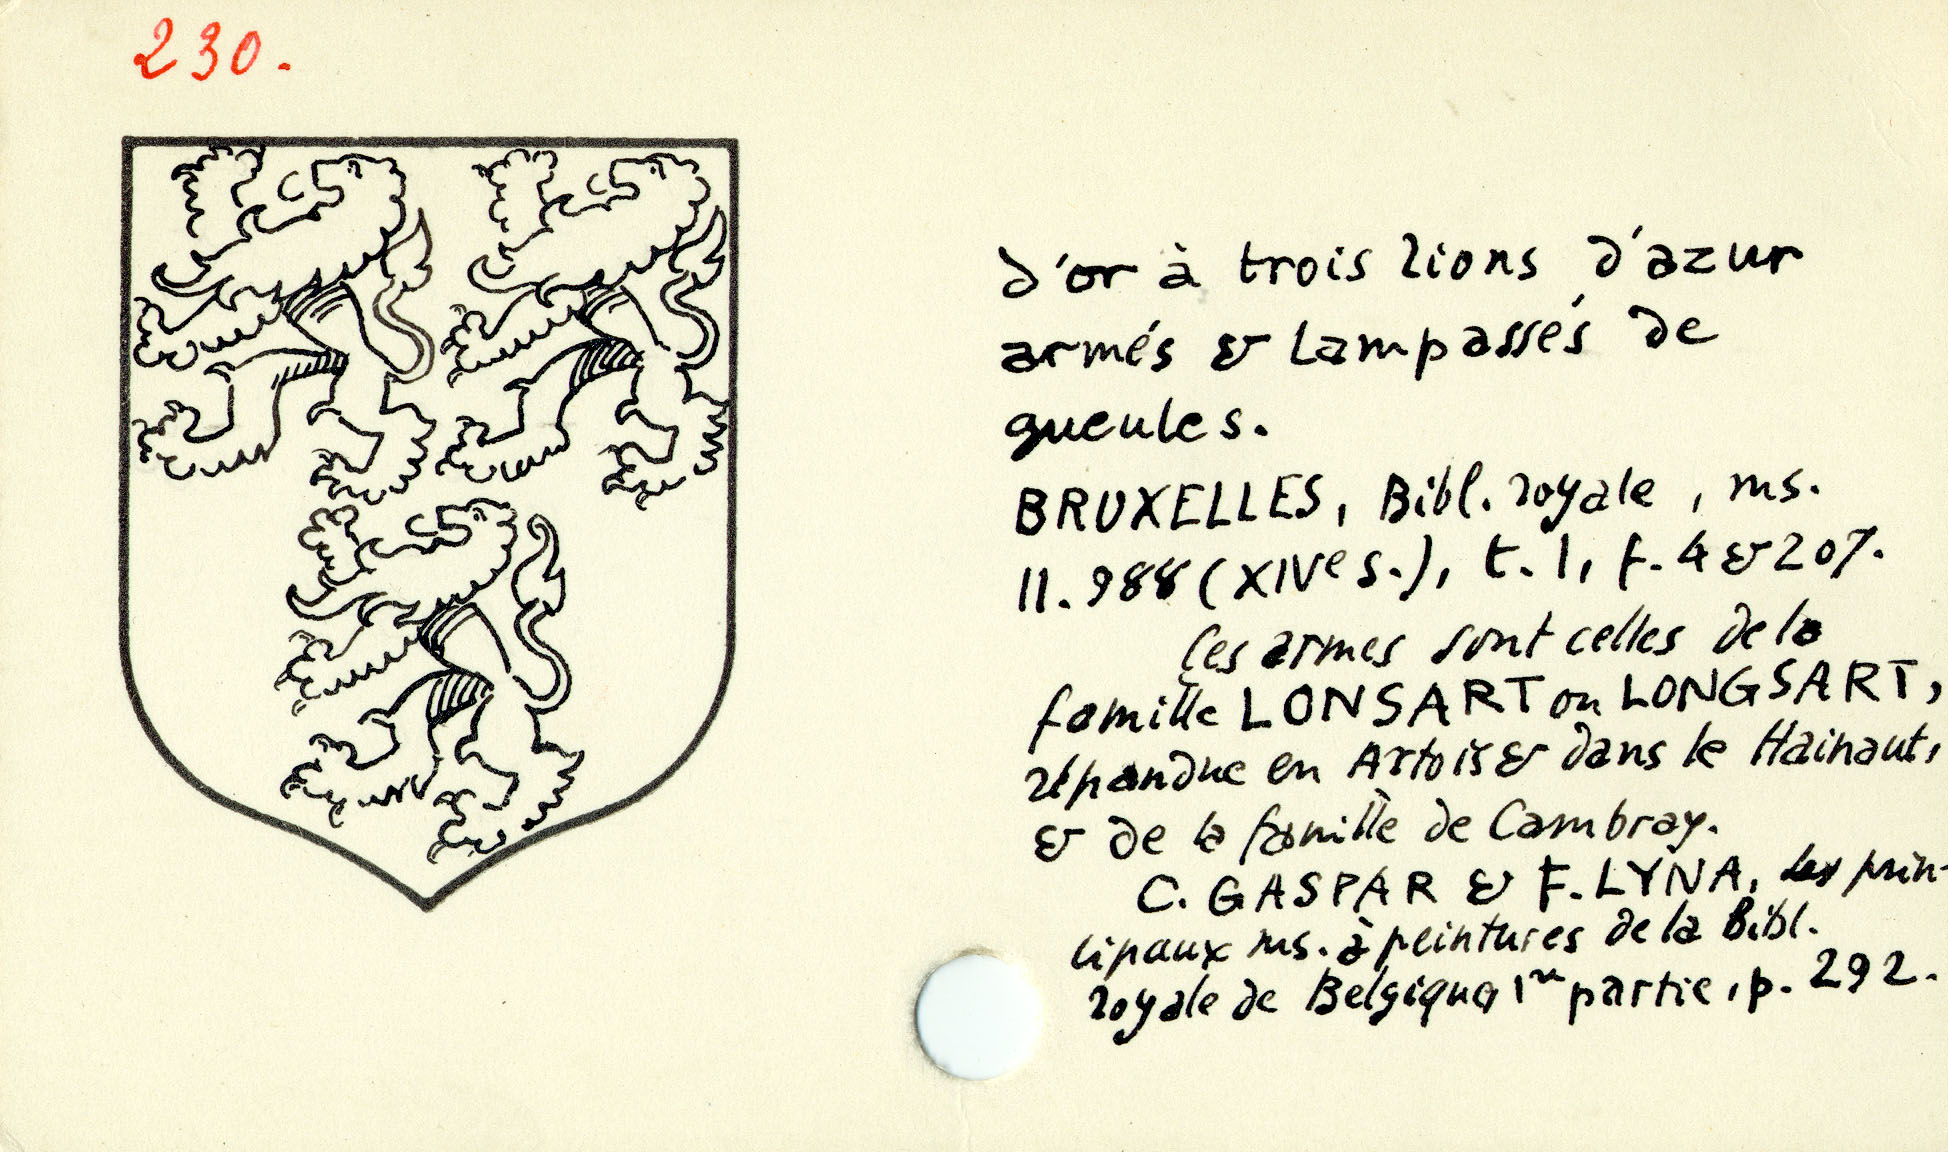 230.
d'or à trois lions d'azur
armés & lampassés de
gueules.
BRUXELLES, Bibl. royale, ms.
11.988 (XIVe s.), t.1, f. 4 & 207.
Ces armes sont celles de la
famille LONSART ou LONGSART,
répandue en Artois & dans le Hainaut,
& de la famille de Cambray.
C. GASPAR & F. LYNA, les prin-
cipaux ms. à peintures de la Bibl.
royale de Belgique, 1re partie, p. 292.